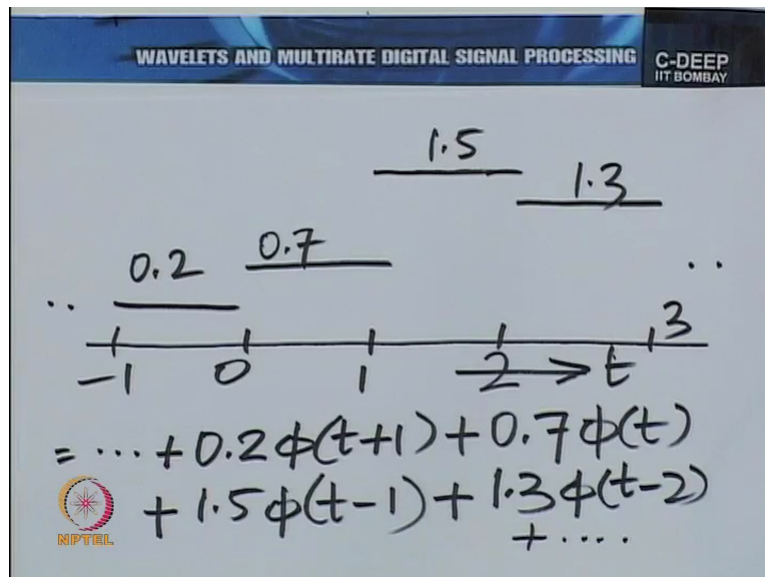 WAVELETS AND MULTIRATE DIGITAL SIGNAL PROCESSING
C-DEEP
IIT BOMBAY
1.5
1.3
0.2
0.7
.. ..
-1 0 1 2 t 3
= ... + 0.2 ϕ(t+1) + 0.7 ϕ(t)
+ 1.5 ϕ(t-1) + 1.3 ϕ(t-2)
+ ....
NPTEL